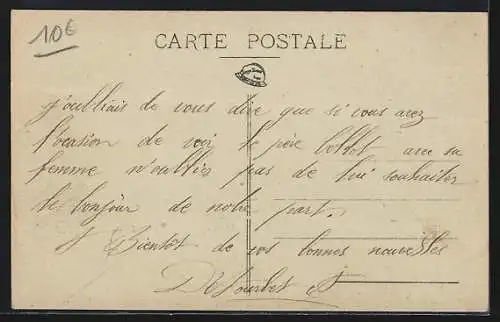 10€
CARTE POSTALE
j'oubliais de vous dire que si vous avez
l'ocasion de voir le père Bolbot avec sa
femme n'oubliez pas de lui souhaiter
le bonjour de notre part.
Bientôt de vos bonnes nouvelles